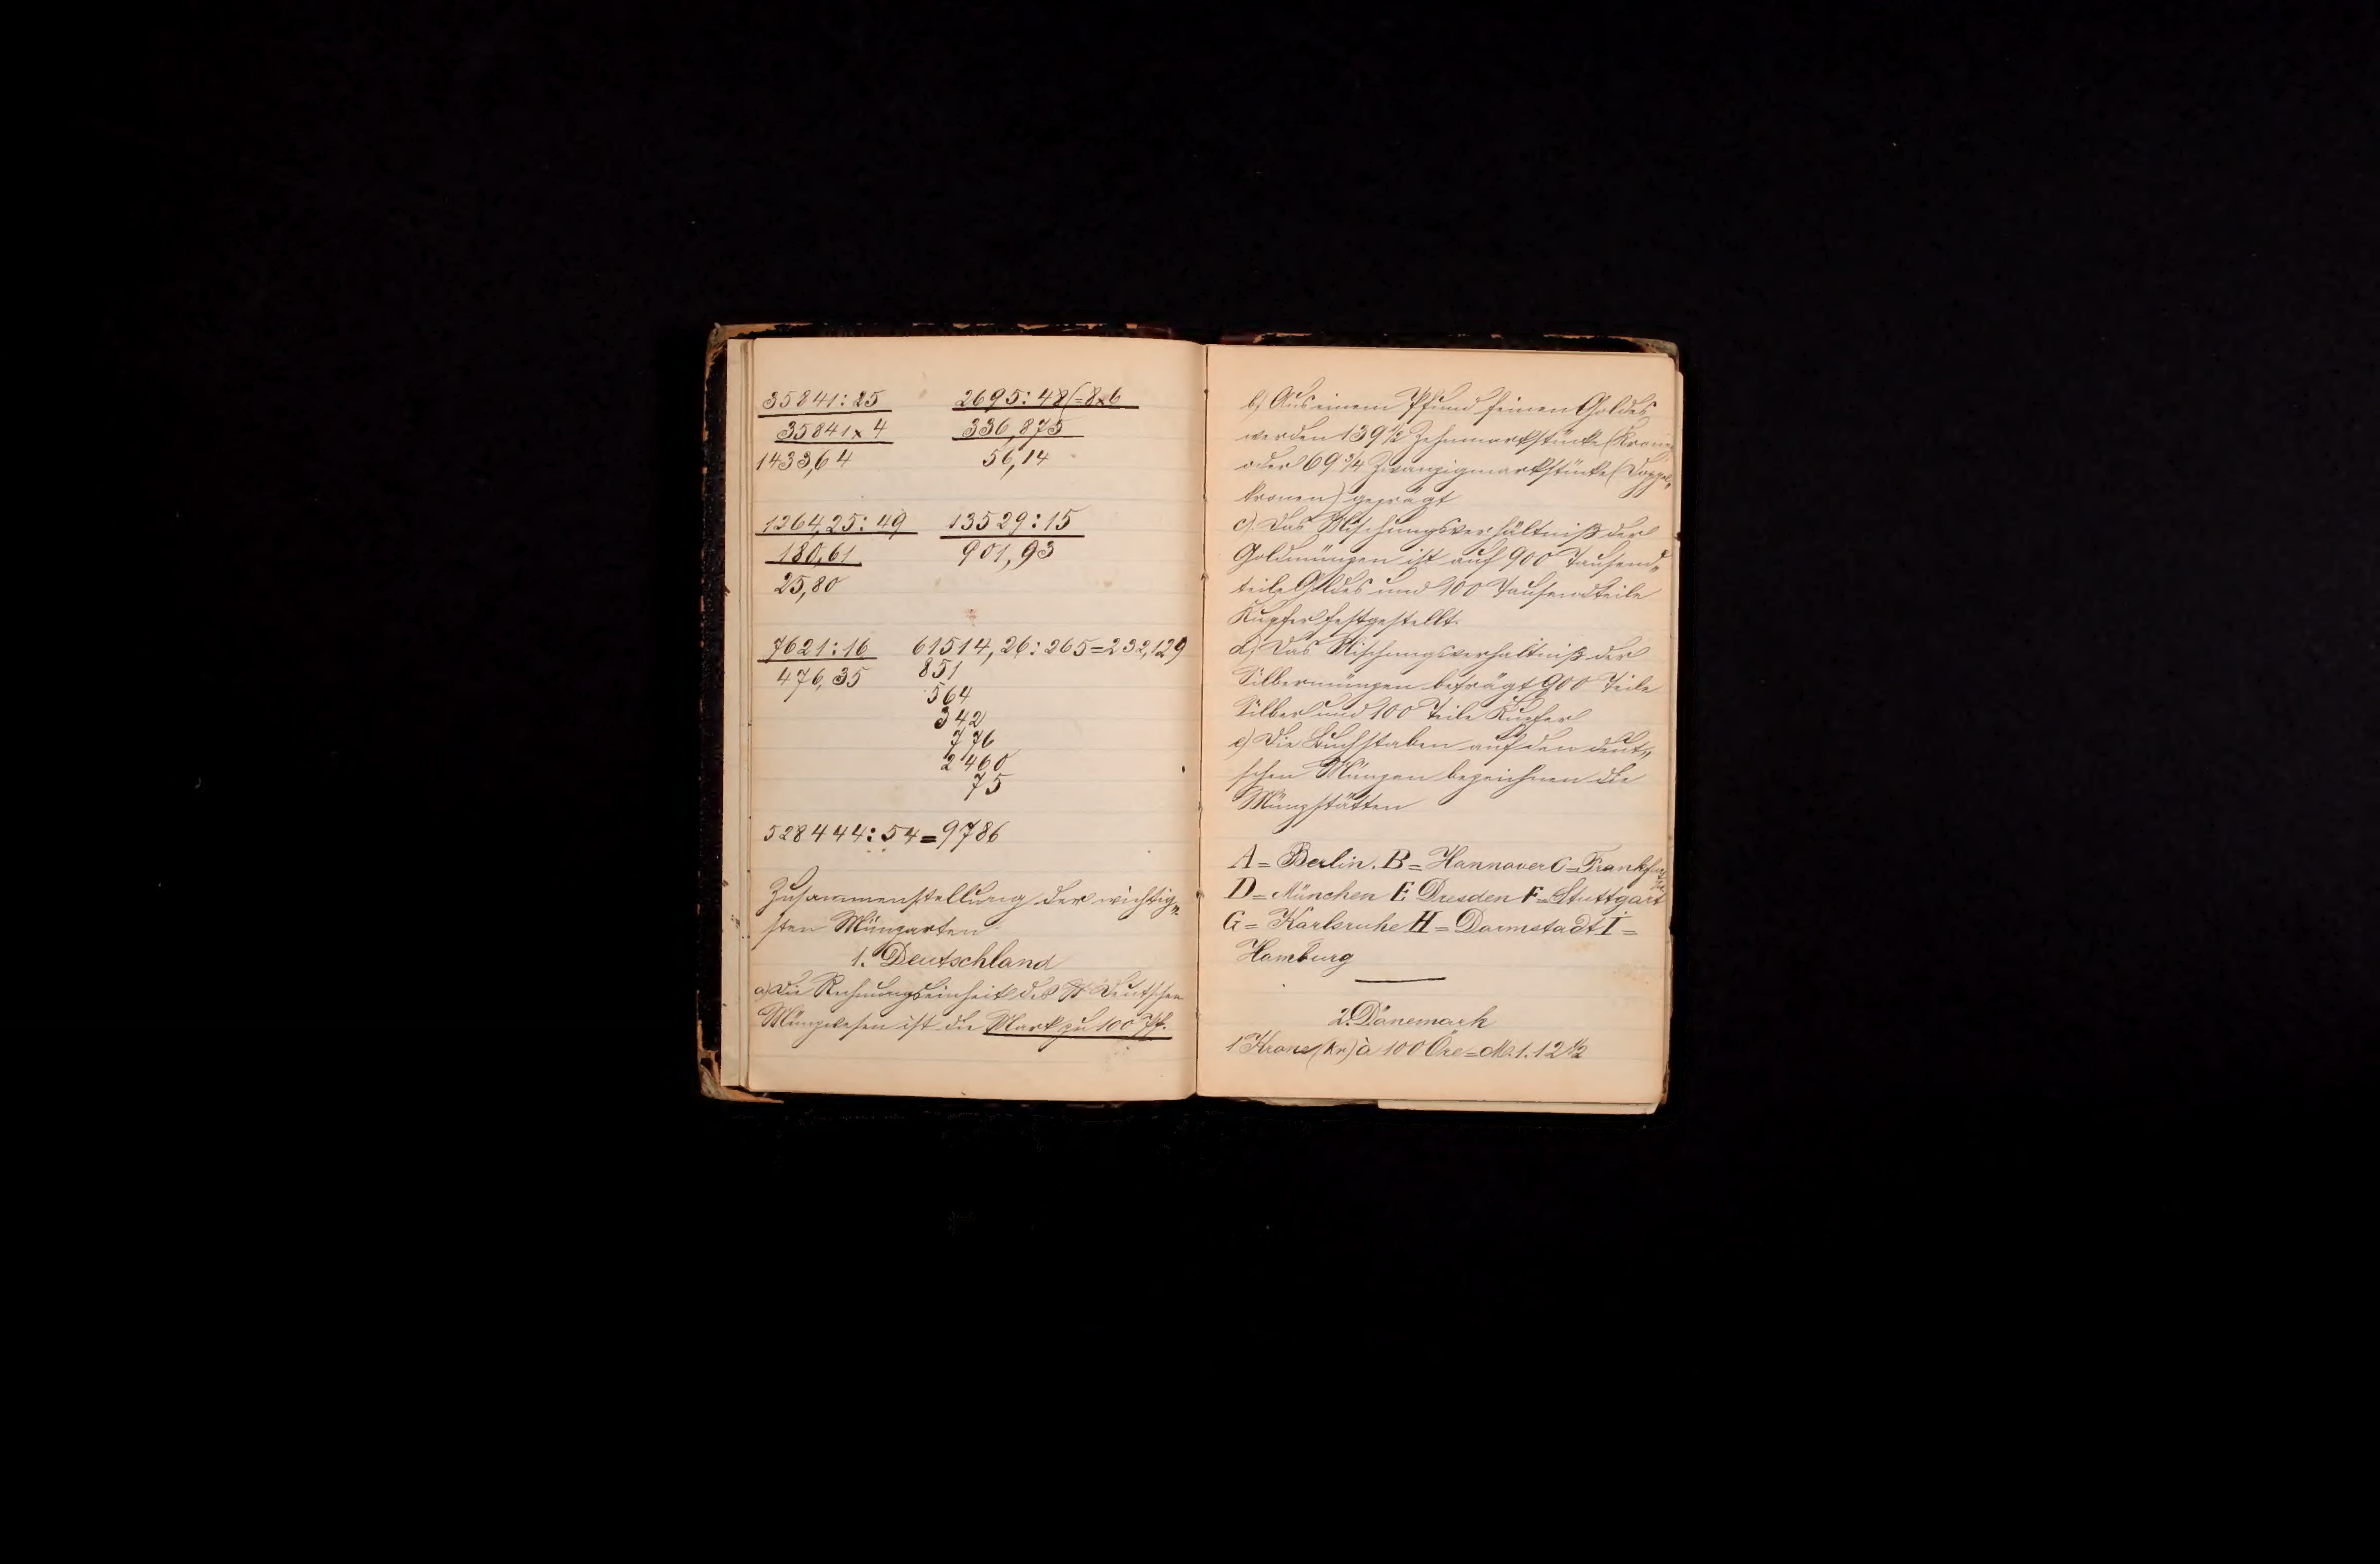 35841:25
35841x4
1433,64
2695:48(=8x6
336,875
56,14
1264,25:49
180,61
25,80
13529:15
901,93
7621:16
476,35
61514,26:265=232,129
851
564
342
776
2460
75
528444:54=9786
Zusammenstellung der wichtig„
sten Münzarten
1. Deutschland
a) Die Rechnungseinheit des Deutschen
Münzwesen ist die Mark zu 100 Pf.
b) Aus einem Pfund feinen Goldes
werden 139 1/2 Zehnmarkstücke (Kronen
oder 69 3/4 Zwanzigmarkstücke (Doppel„
kronen) geprägt
c) Das Mischungsverhältniß der
Goldmünzen ist auf 900 Tausend„
teile Goldes und 100 Tausendteile
Kupfer festgestellt.
d) Das Mischungsverhältniß der
Silbermünzen beträgt 900 Teile
Silber und 100 Teile Kupfer
e) Die Buchstaben auf den deut„
schen Münzen bezeichnen die
Münzstätten
A = Berlin. B = Hannover C = Frankfurt
D = München E Dresden F = Stuttgart
G = Karlsruhe H = Darmstadt I =
Hamburg
2. Dänemark
1 Krone (Kr) à 100 Öre = M. 1. 12 1/2